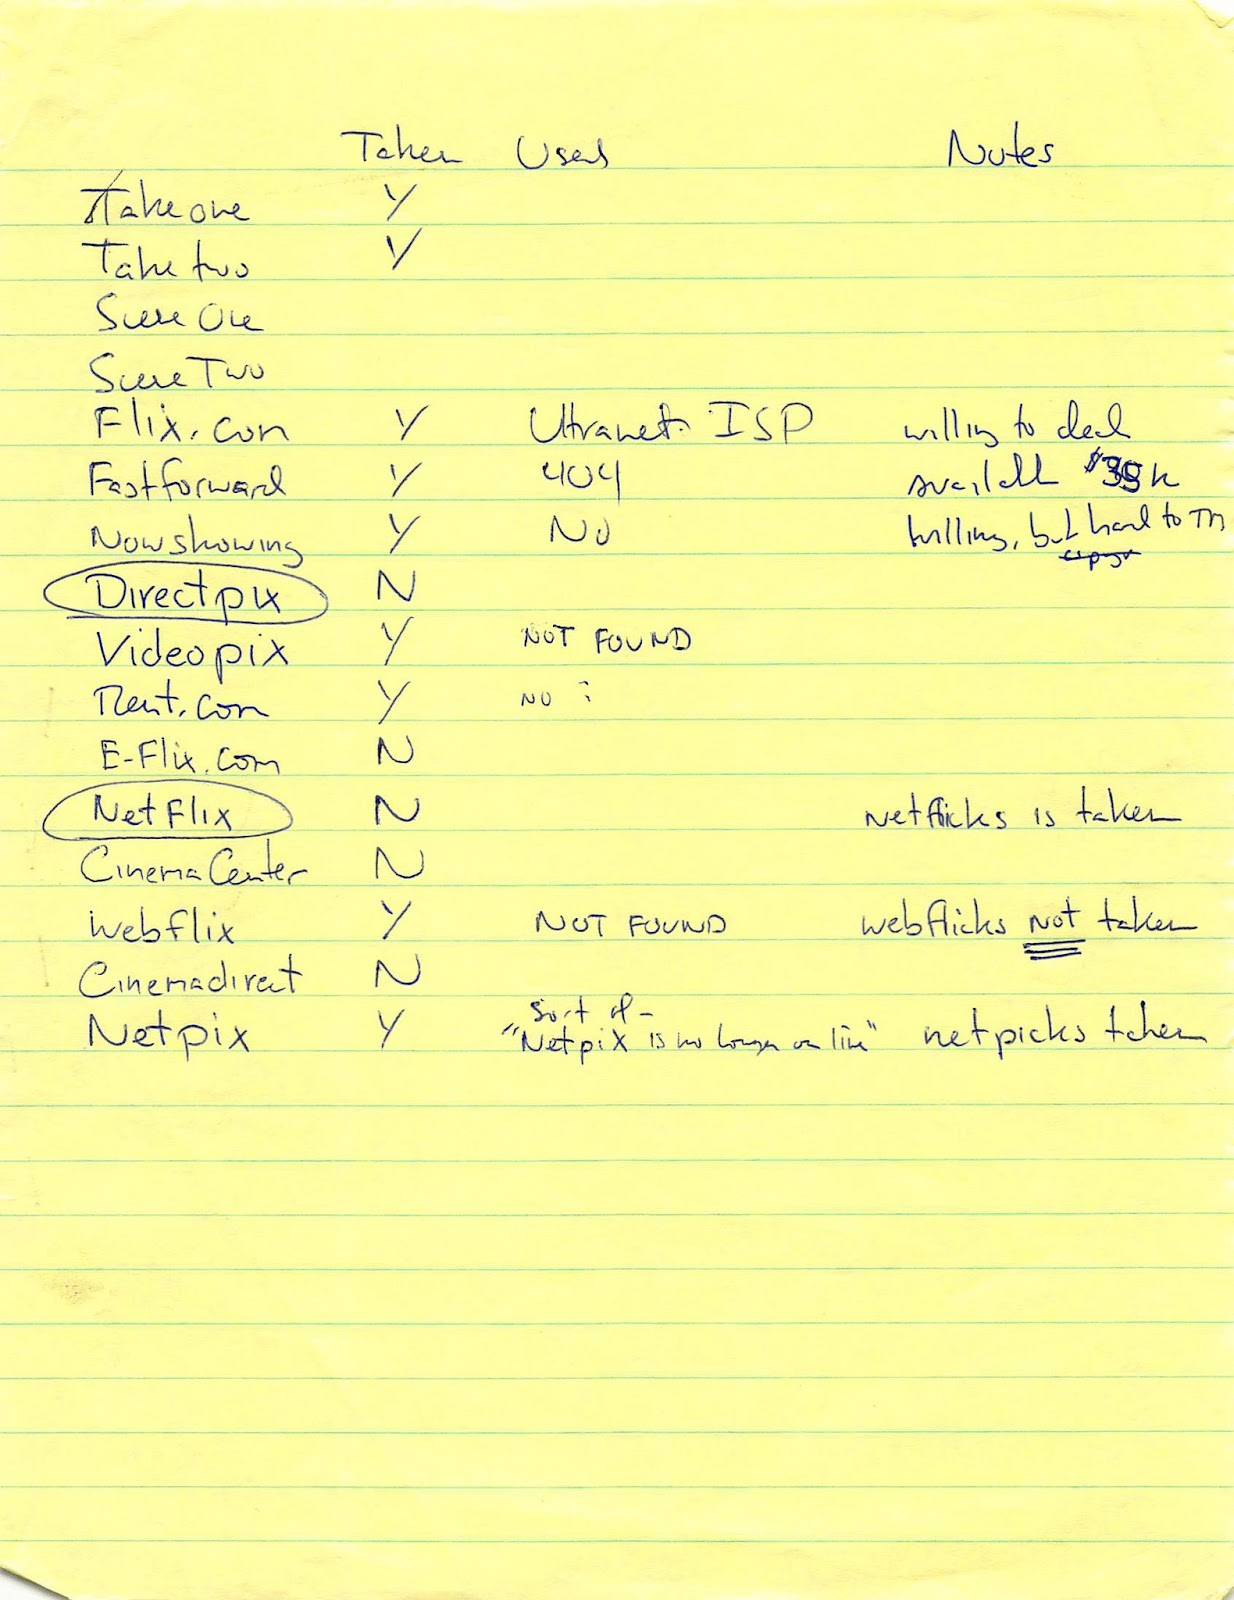 Taken Used Notes
Takeone Y
Taketwo Y
Scene One
Scene Two
Flix.com Y Ultranet ISP willing to deal
Fastforward Y 404 available $35k
Nowshowing Y No willing, but hard to TM
Directpix N
Videopix Y NOT FOUND
Rent.com Y NO
E-Flix.com N
NetFlix N netflicks is taken
CinemaCenter N
webflix Y NOT FOUND webflicks NOT taken
Cinemadirect N
Netpix Y Sort of - "Netpix is no longer on line" netpicks taken